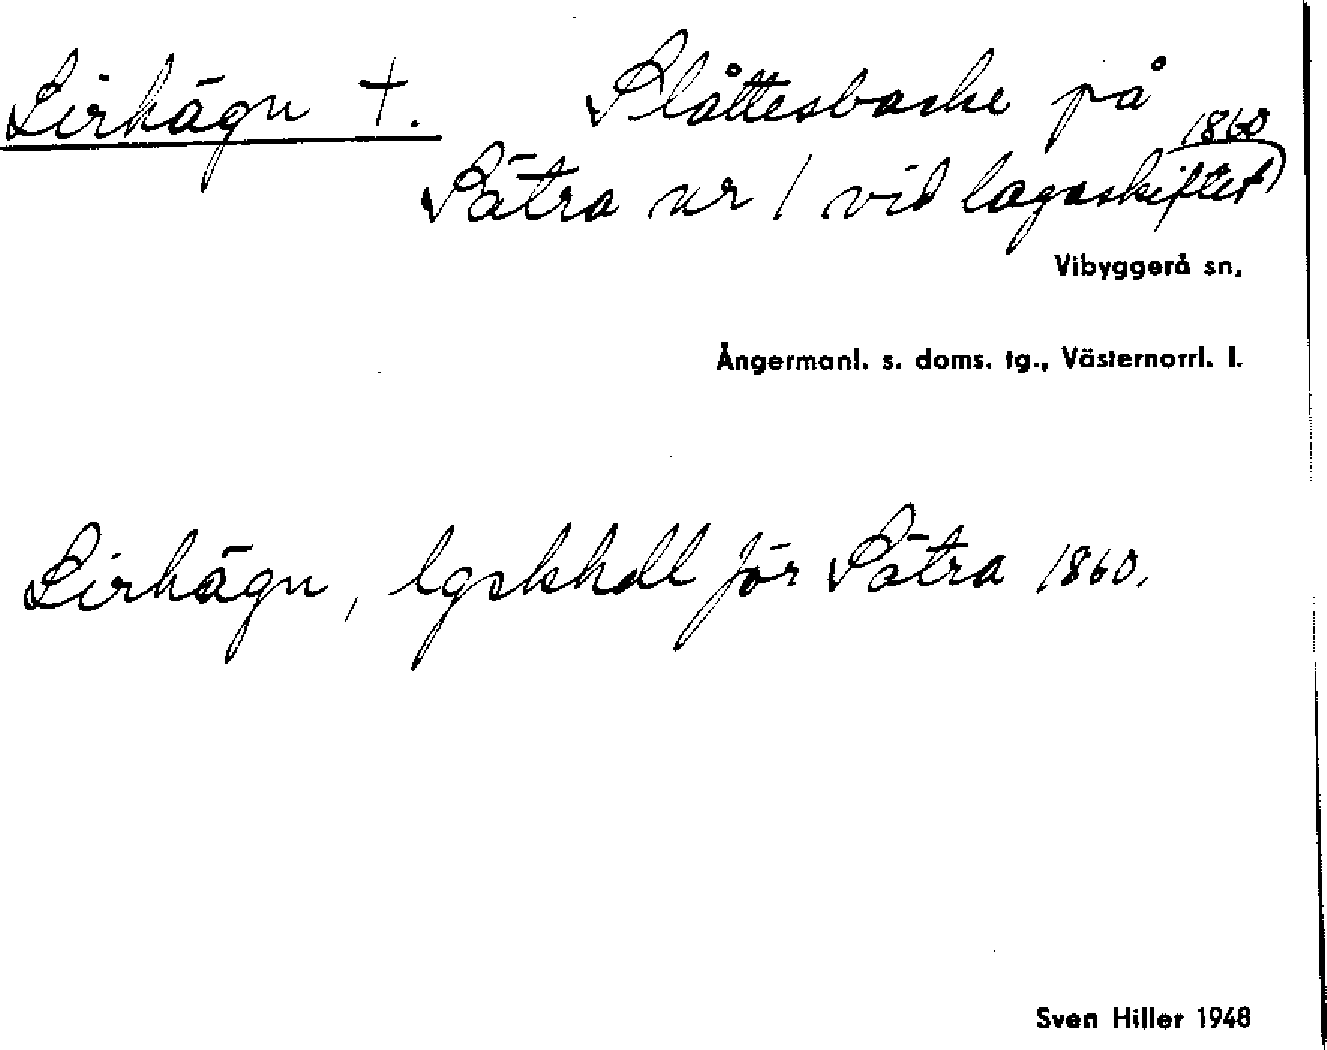 Lirhägn †. Slåttesbacke på
Sätra nr 1 vid lagaskiftet 1860
Vibyggerå sn,
Ångermanl. s. doms. tg., Västernorrl. l.
Lirhägn, lgskhdl för Sätra 1860.
Sven Hiller 1948